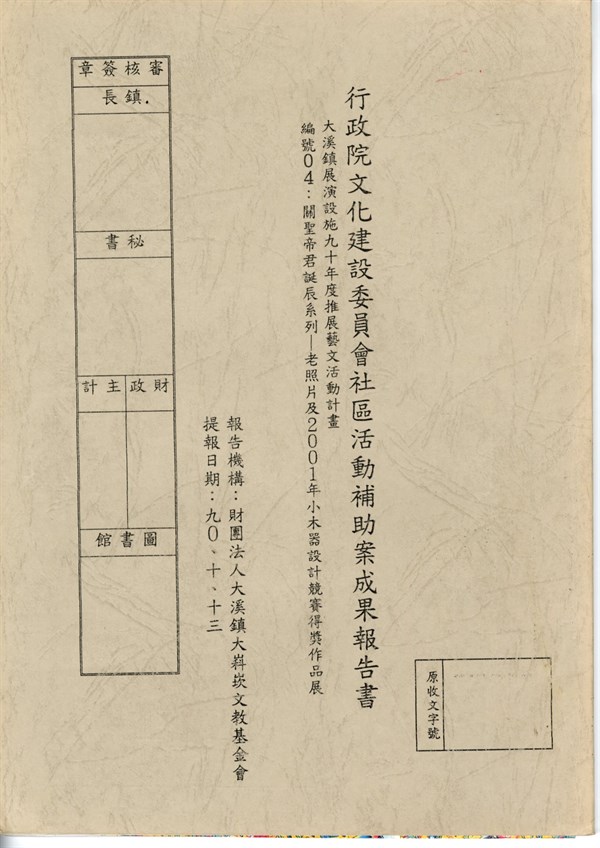 行政院文化建設委員會社區活動補助案成果報告書
大溪鎮展演設施九十年度推展藝文活動計畫
編號04：關聖帝君誕辰系列—老照片及2001年小木器設計競賽得獎作品展
報告機構：財團法人大溪鎮大嵙崁文教基金會
提報日期：九0、十、十三
審核簽章
鎮長
秘書
財政
主計
圖書館
原收文字號